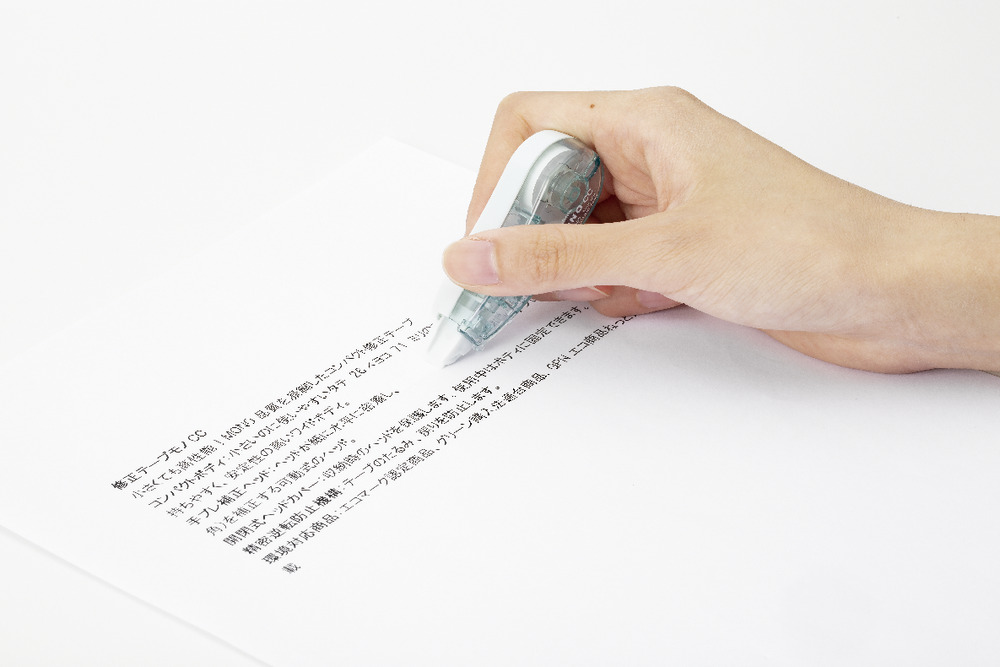 修正テープモノCC
小さくても高性能!MONO品質を凝縮したコンパクト修正テープ
コンパクトボディ:小さいのに使いやすいタテ 26×ヨコ 71 ミリの
持ちやすく、安定性の高いワイドボディ。
手ブレ補正ヘッド:ヘッドが紙に水平に密着し、
角)を補正する可動式のヘッド。
開閉式ヘッドカバー:収納時のヘッドを保護します、使用中はボディに固定できます。
精密逆転防止機構:テープのたるみ、戻りを防止します。
環境対応商品:エコマーク認定商品、グリーン購入法適合商品、GPN エコ商品ねっと
載
NO CC